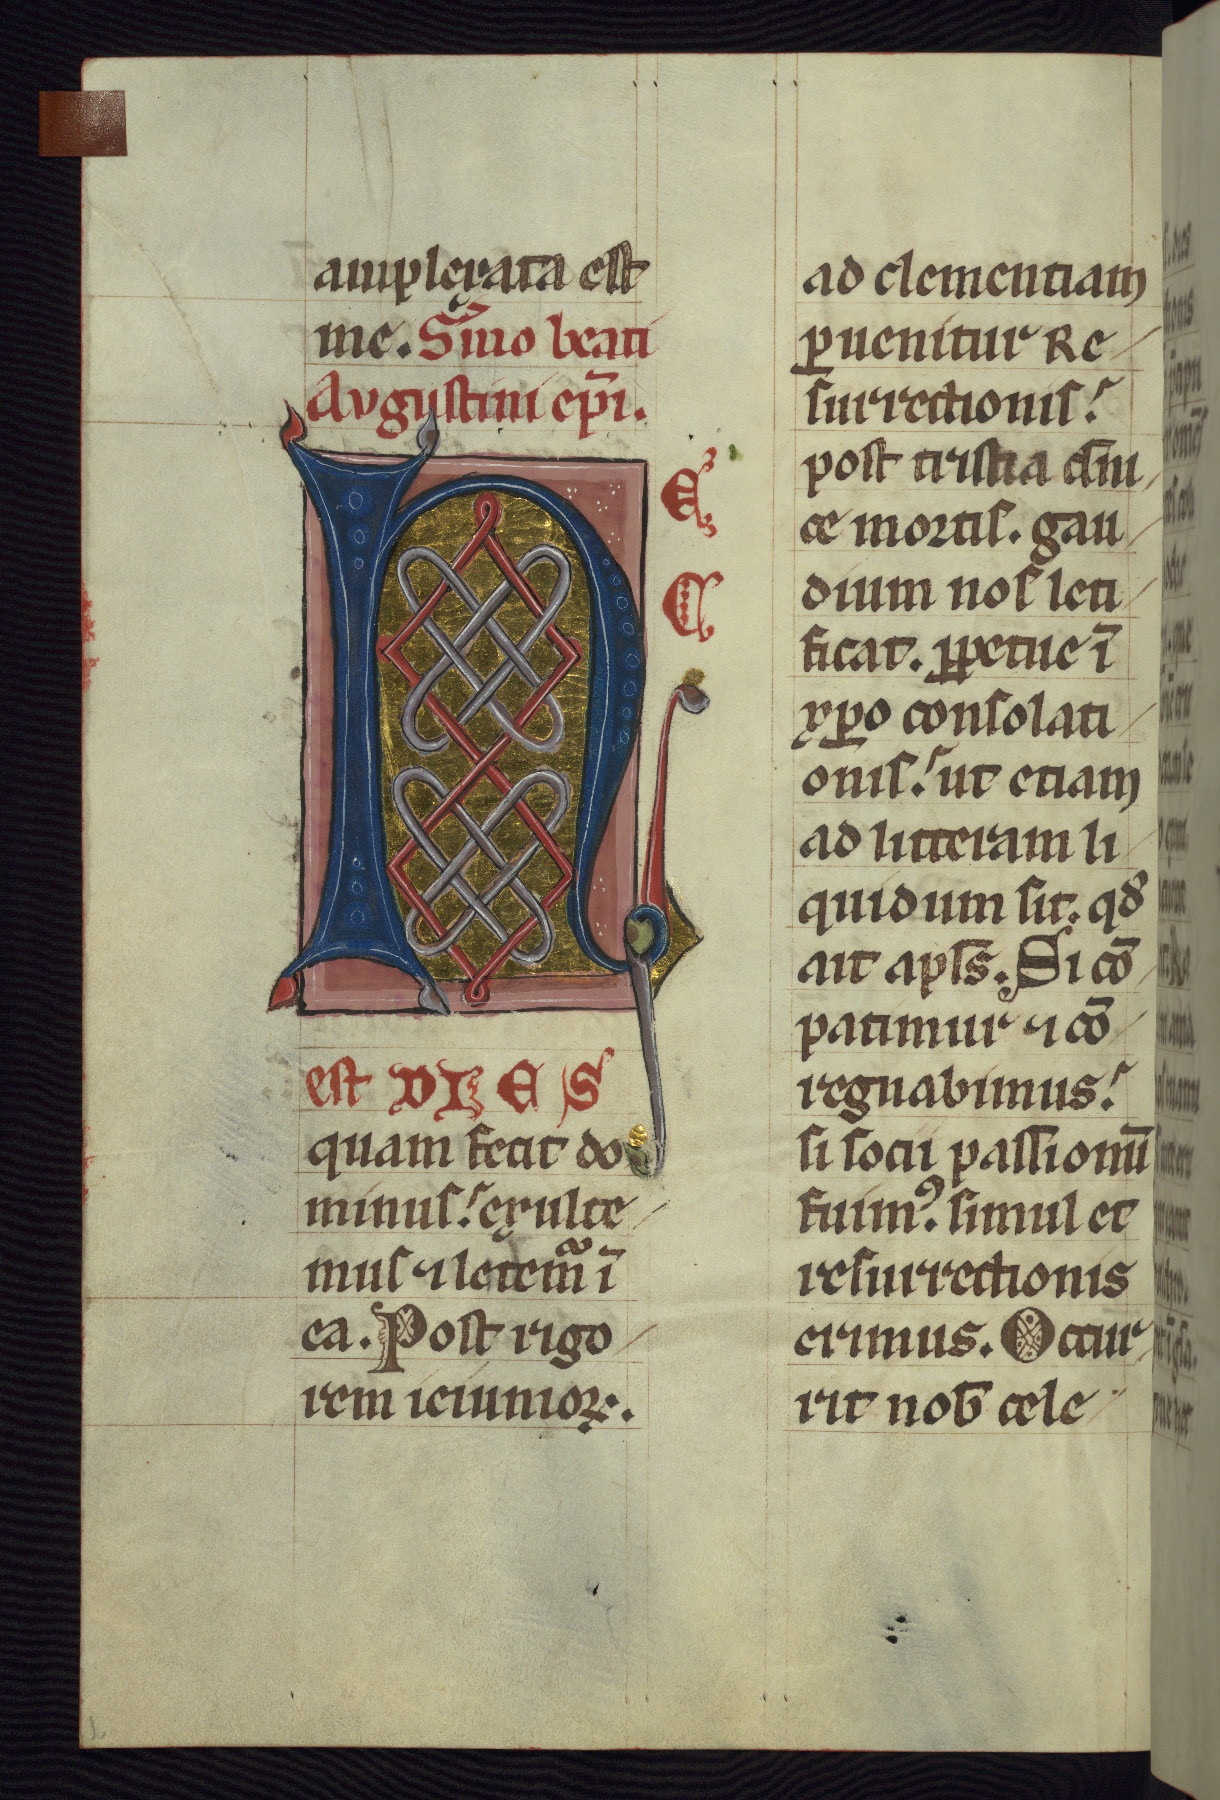 amplexata est
me. S̄mo beati
Augustini ep̄i.
HEC
est DIES
quam fecit do
minus. exulte
mus ⁊ letem̄ ī
ea. Post rigo
rem ieiunioꝝ.
ad clementiam
ꝑuenitur Re
surrectionis.
post tristia ch̄iu
ce mortis. gau
dium nos leti
ficat. ꝑpetue ī
xp̱o consolati
onis. ut etiam
ad litteram li
quidum sit. qđ
ait apls̄. Si cō
patimur ⁊ cō
regnabimus.
si socii passionū
fuimꝰ. simul et
resurrectionis
erimus. Occur
rit nob̄ cele